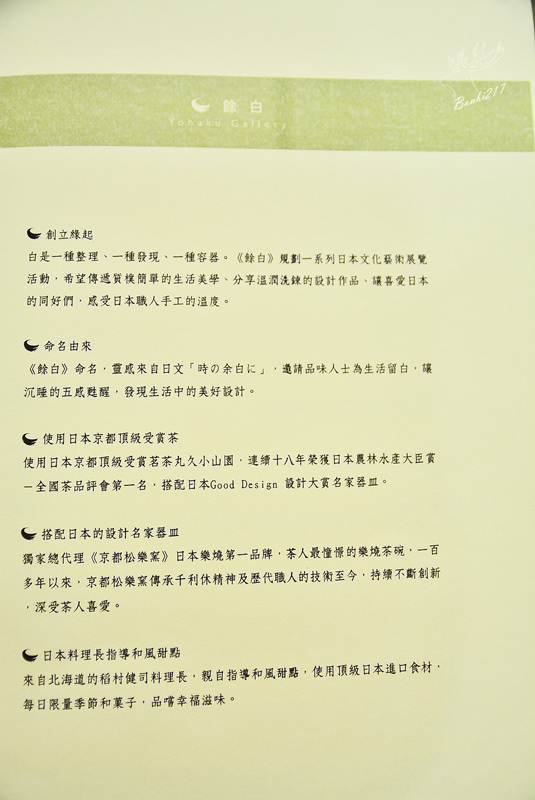 Banhi217
餘白
Yohaku Gallery
創立緣起
白是一種整理、一種發現、一種容器。《餘白》規劃一系列日本文化藝術展覽
活動，希望傳遞質樸簡單的生活美學、分享溫潤洗鍊的設計作品、讓喜愛日本
的同好們，感受日本職人手工的溫度。
命名由來
《餘白》命名，靈感來自日文「時の余白に」，邀請品味人士為生活留白，讓
沉睡的五感甦醒，發現生活中的美好設計。
使用日本京都頂級受賞茶
使用日本京都頂級受賞茗茶丸久小山園，連續十八年榮獲日本農林水產大臣賞
－全國茶品評會第一名，搭配日本Good Design 設計大賞名家器皿。
搭配日本的設計名家器皿
獨家總代理《京都松樂窯》日本樂燒第一品牌，茶人最憧憬的樂燒茶碗，一百
多年以來，京都松樂窯傳承千利休精神及歷代職人的技術至今，持續不斷創新
，深受茶人喜愛。
日本料理長指導和風甜點
來自北海道的稻村健司料理長，親自指導和風甜點，使用頂級日本進口食材，
每日限量季節和菓子，品嚐幸福滋味。